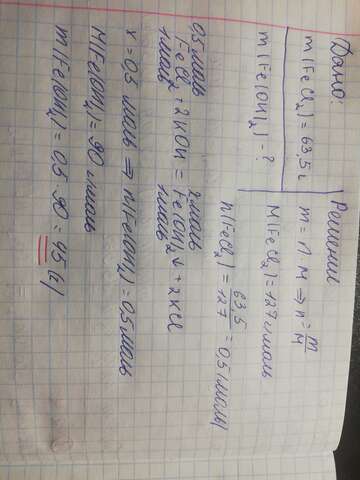 Дано:
m(FeCl₂) = 63,5 г
m(Fe(OH)₂) - ?
Решение
m = n · M ⇒ n = m/M
M(FeCl₂) = 127 г/моль
n(FeCl₂) = 63,5/127 = 0,5 (моль)
0,5 моль x моль
FeCl₂ + 2KOH = Fe(OH)₂↓ + 2KCl
1 моль 1 моль
x = 0,5 моль ⇒ n(Fe(OH)₂) = 0,5 моль
M(Fe(OH)₂) = 90 г/моль
m(Fe(OH)₂) = 0,5 · 90 = 45 (г)